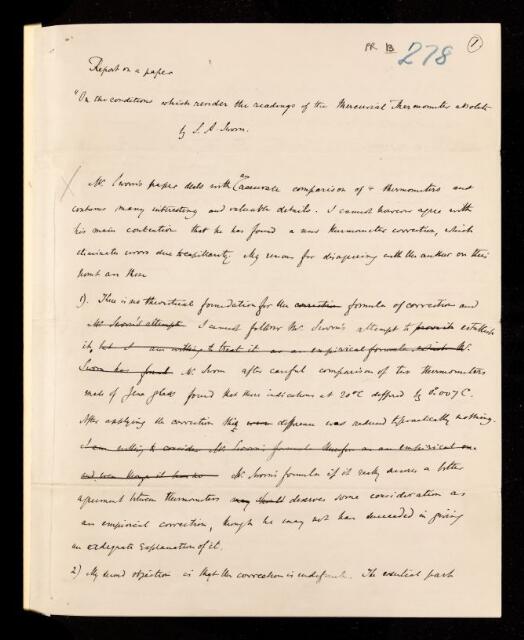 RR 13 278 1
Report on a paper
"On the conditions which render the readings of the Mercurial Thermometer absolute
by S. A. Sworn.
Mr Sworn's paper deals with an accurate comparison of 4 thermometers and
contains many interesting and valuable details. I cannot however agree with
his main contention that he has found a new thermometer correction, which
eliminates errors due to capillarity. My reasons for disagreeing with the author on this
point are these
1). There is no theoretical foundation for the correction formula of correction and
Mr Sworn's attempt I cannot follow Mr. Sworn's attempt to establish
it, but I am willing to treat it as an empirical formula which Mr.
Sworn has found Mr. Sworn after careful comparison of two thermometers
made of Jena glass found that their indications at 20°C differed by 0.°007 C.
After applying the correction this difference was reduced to practically nothing.
I am willing to consider Mr Sworn's formula therefore as an empirical one
and even though it has no Mr Sworn's formula if it really assures a better
agreement between thermometers may deserves some consideration as
an empirical correction, though he may not have succeeded in giving
an adequate explanation of it.
2) My second objection is that the correction is indefinite. The essential part